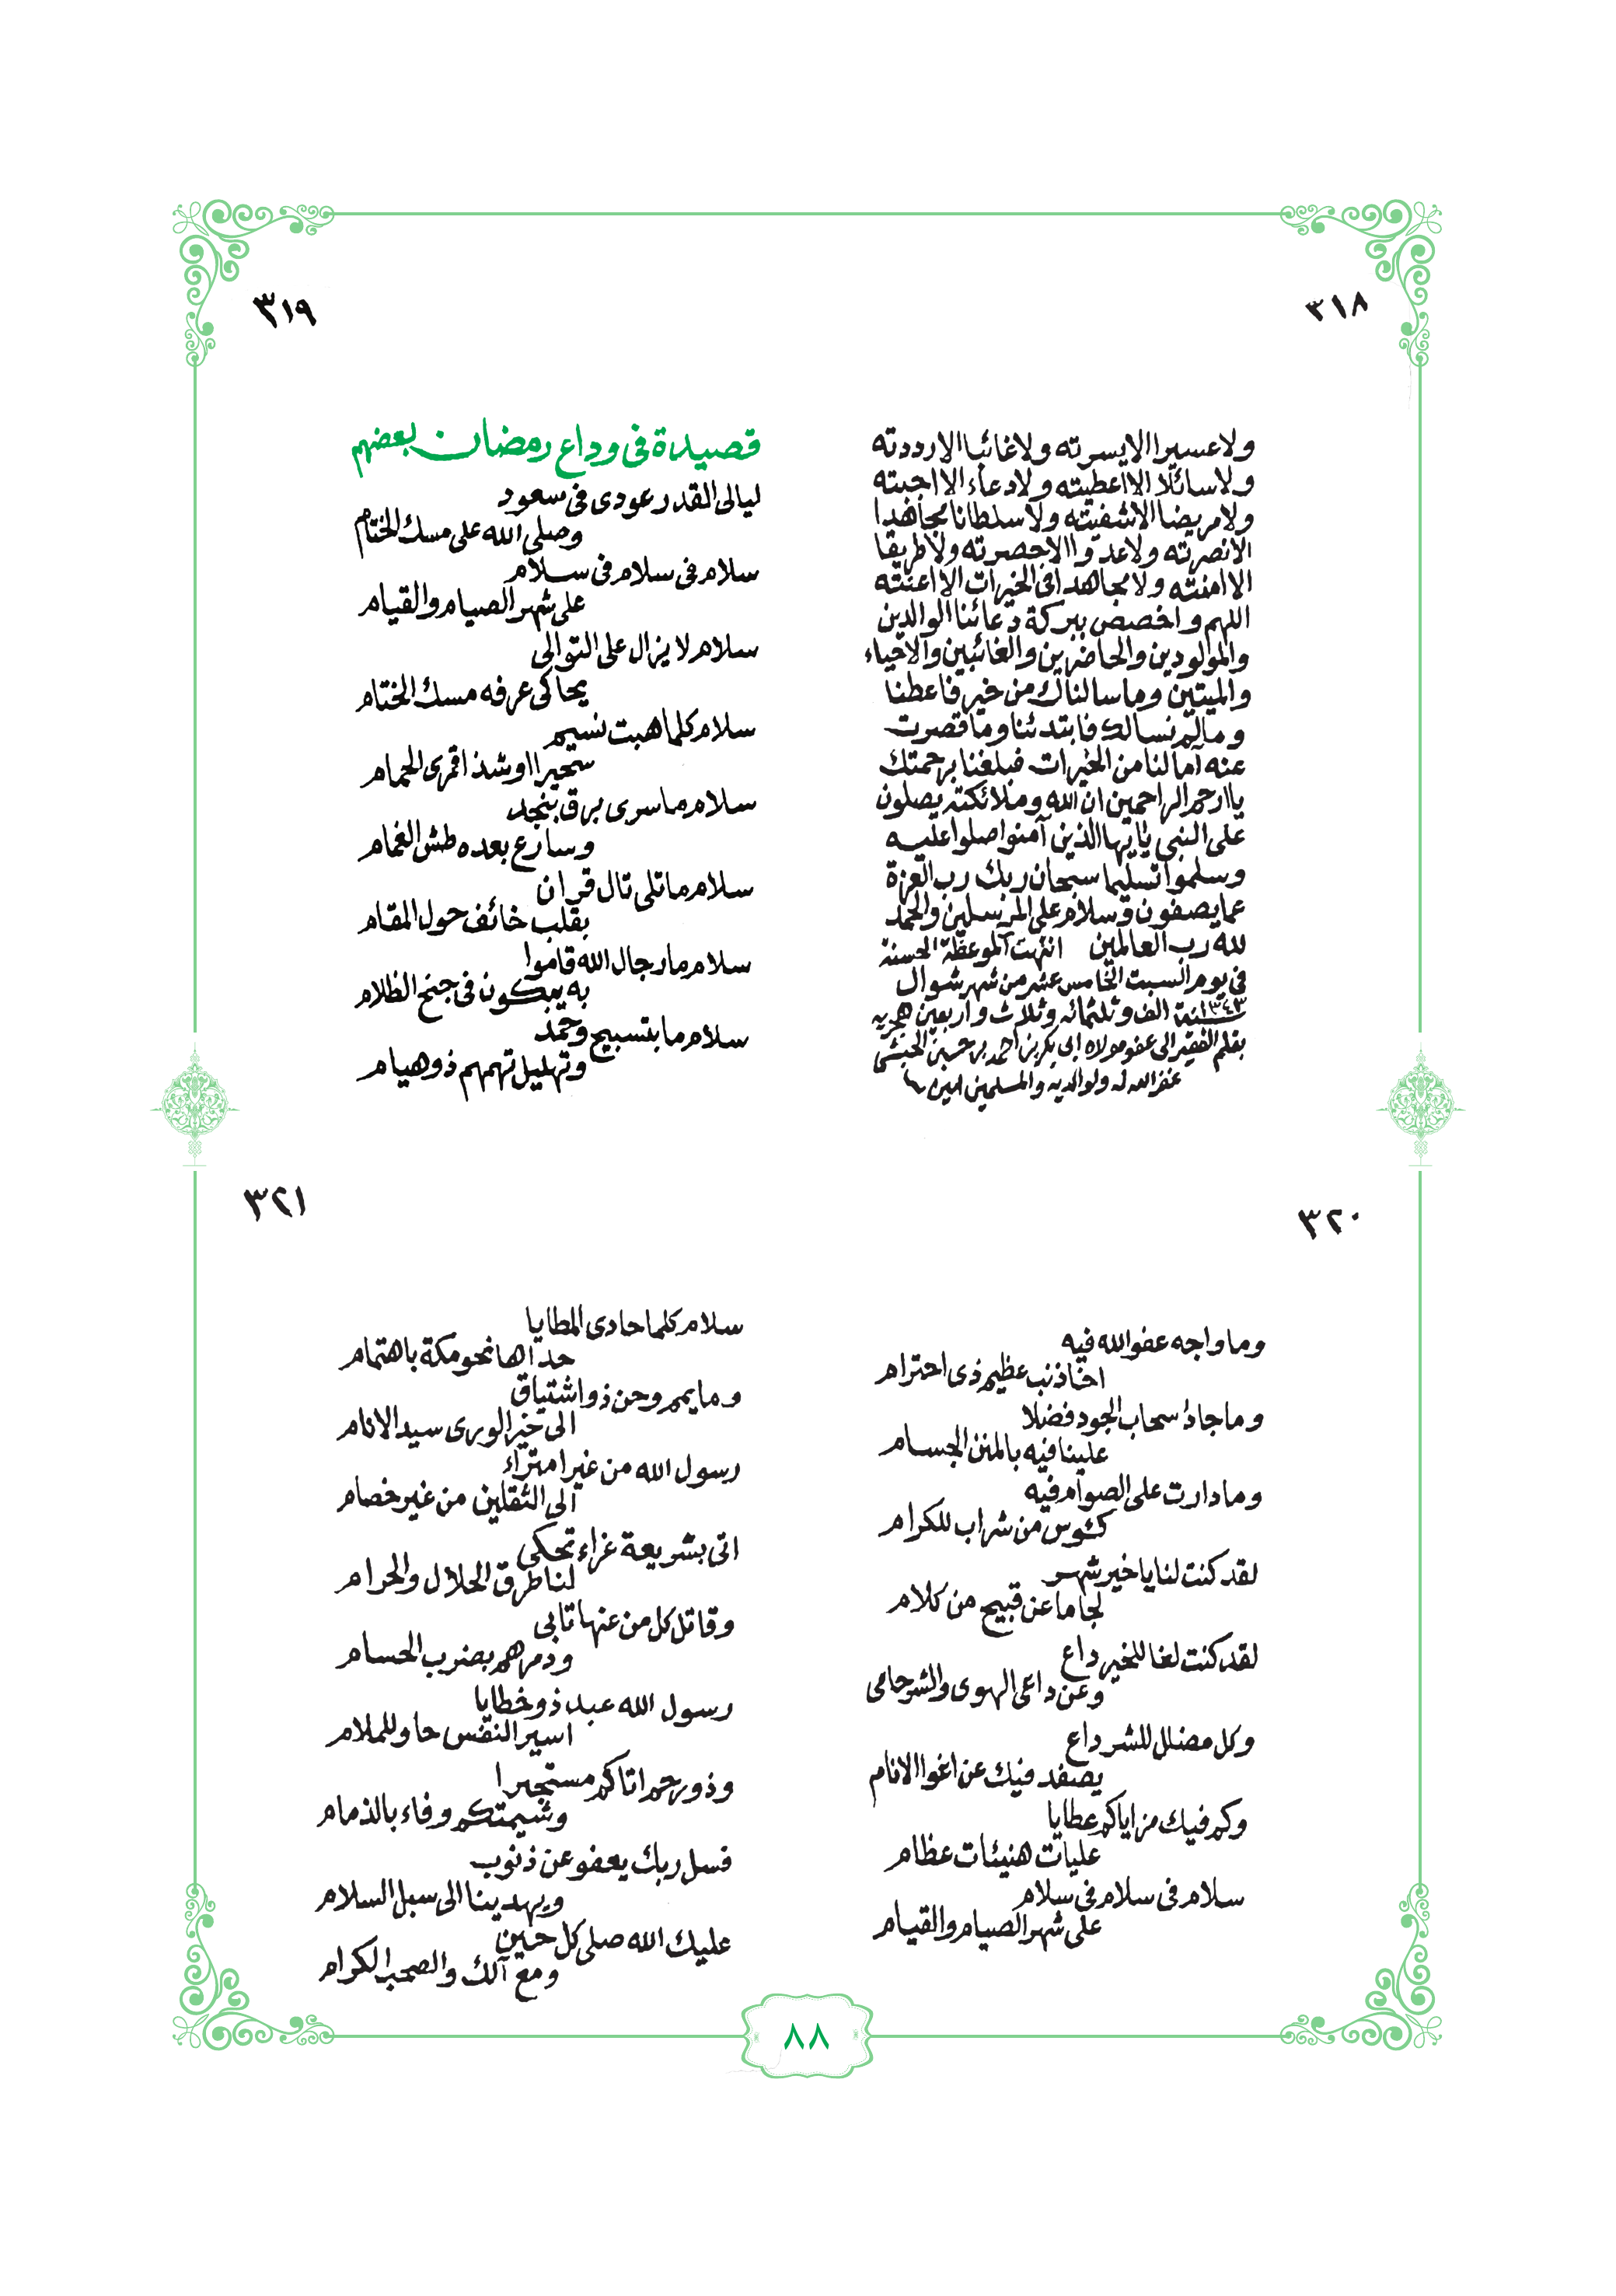 ٣١٨
ولا عسيرا الا يسرته ولا غائبا الا رددته
ولا سائلا الا اعطيته ولا دعاء الا اجبته
ولا مريضا الا شفيته ولا سلطانا مجاهدا
الا نصرته ولا عدوا الا حصرته ولا طريقا
الا امنته ولا مجاهدا في الخيرات الا اعنته
اللهم واخصص ببركة دعائنا الوالدين
والمولودين والحاضرين والغائبين والاحياء
والميتين وما سالناك من خير فاعطنا
ومالم نسالك فابتدئنا وما قصرت
عنه آمالنا من الخيرات فبلغنا برحمتك
يا ارحم الراحمين ان الله وملائكته يصلون
على النبي يايها الذين آمنوا صلوا عليه
وسلموا تسليما سبحان ربك رب العزة
عما يصفون وسلام على المرسلين والحمد
لله رب العالمين انتهت الموعظة الحسنة
في يوم السبت الخامس عشر من شهر شوال
١٣٤٣ سنة الف وثلثمائه وثلاث واربعين هجريه
بقلم الفقير الى عفو مولاه ابي بكر بن احمد بن حسين الحبشي
غفر الله له ولوالديه والمسلمين امين
٣١٩
قصيدة في وداع رمضان بعضهم
ليالى القدر عودى فى سعود
وصلى الله على مسك الختام
سلام فى سلام فى سلام
على شهر الصيام والقيام
سلام لا يزال على التوالى
يحاكى عرفه مسك الختام
سلام كلما هبت نسيم
سحيرا او شذا قمرى الحمام
سلام ما سرى برق بنجد
وسارع بعده طش الغمام
سلام ما تلى تال قران
بقلب خائف حول المقام
سلام ما رجال الله قاموا
به يبكون فى جنح الظلام
سلام ما بتسبيح وحمد
وتهليل تهمهم ذوهيام
٣٢٠
وما واجه عفو الله فيه
اخا ذنب عظيم ذى احترام
وما جاد سحاب الجود فضلا
علينا فيه بالمنن الجسام
وما دارت على الصوام فيه
كئوس من شراب للكرام
لقد كنت لنا يا خير شهر
لجاما عن قبيح من كلام
لقد كنت لغا للخير داع
وعن داعى الهوى والشر حامى
وكل مضلل للشر داع
يصفد فيك عن اغوا الانام
وكم فيك مزايا كم عطايا
عليات هنيئات عظام
سلام فى سلام فى سلام
على شهر الصيام والقيام
٣٢١
سلام كلما حادى المطايا
حداها نحو مكة باهتمام
وما يمم وحن ذو اشتياق
الى خير الورى سيد الانام
رسول الله من غير امتراء
الى الثقلين من غير خصام
اتى بشريعة غراء تحكى
لنا طرق الحلال والحرام
وقاتل كل من عنها تابى
ودمرهم بضرب الحسام
رسول الله عبد ذو خطايا
اسير النفس حاو للملام
وذو رحم اتاكم مستجيرا
وشيمتكم وفاء بالذمام
فسل ربك يعفو عن ذنوب
ويهدينا الى سبل السلام
عليك الله صلى كل حين
ومع آلك والصحب الكرام
٨٨